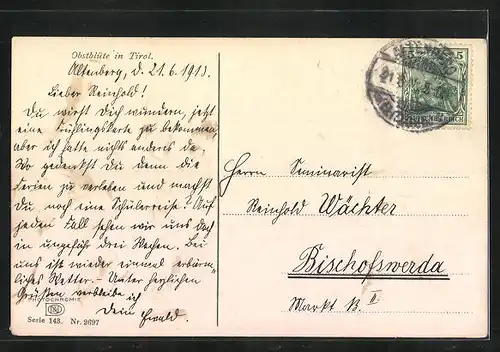 Obstblüte in Tirol.
Altenberg, d. 21.6.1913.
Lieber Reinhold!
Du wirst Dich wundern, jetzt
eine Frühlingskarte zu bekommen,
aber ich hatte nichts anders da.
Wo gedenkst Du denn die
Ferien zu verleben und machst
Du noch eine Schülerreise? Auf
jeden Fall sehen wir uns doch
in ungefähr drei Wochen. Bei
uns ist wieder einmal erbärm-
liches Wetter. - Unter herzlichen
Grüßen verbleibe ich
Dein Ewald.
PHOTOCHROMIE
Serie 143. Nr. 2697
5
DEUTSCHES REICH
Herrn Seminarist
Reinhold Wächter
Bischofswerda
Markt